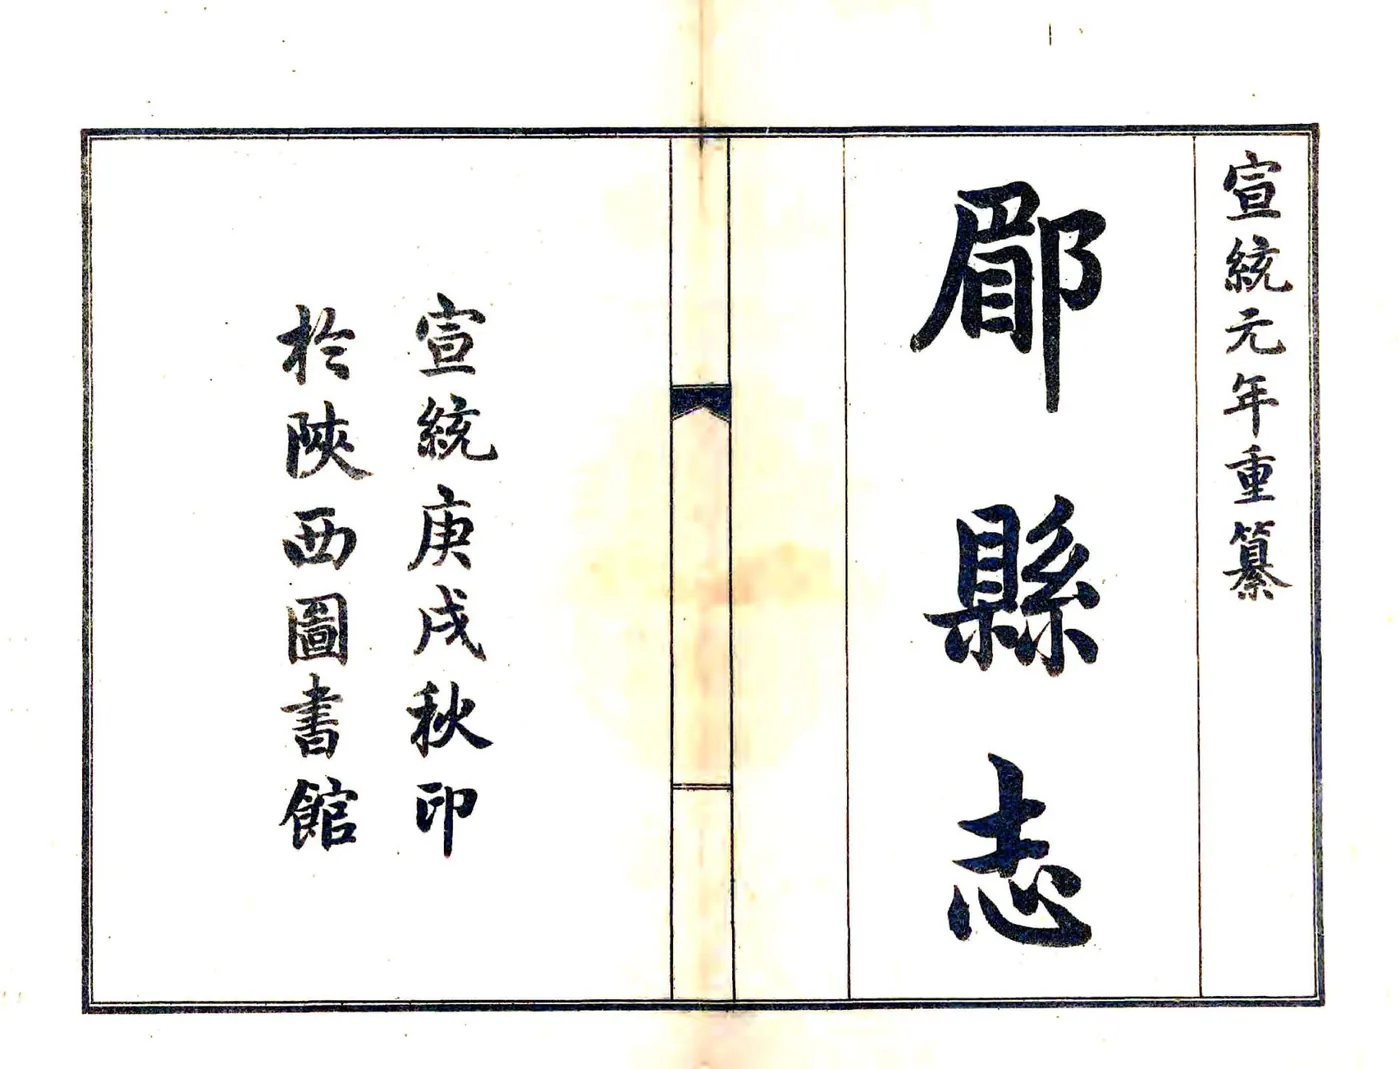 宣統元年重纂
郿縣志
宣統庚戌秋印
於陝西圖書館